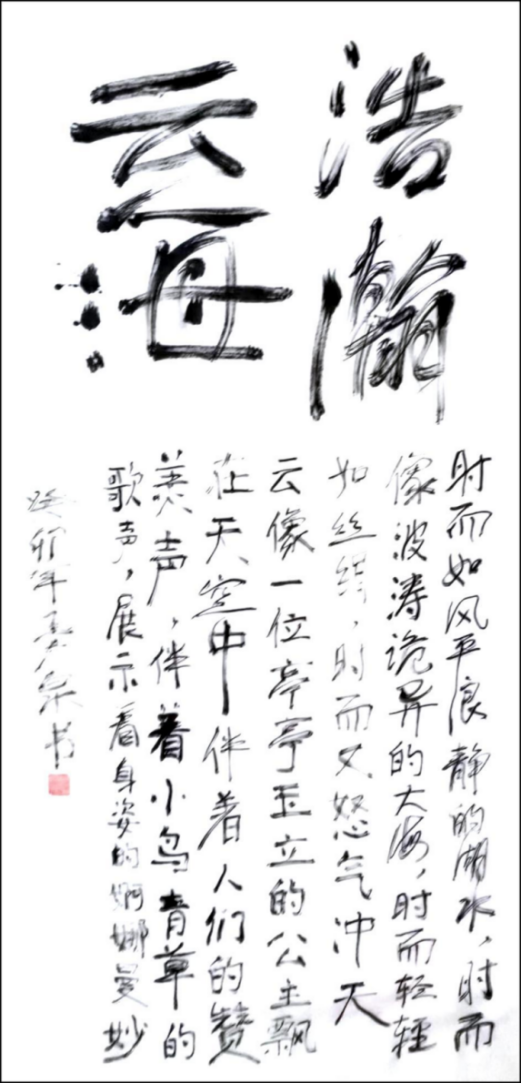 浩瀚
云海
时而如风平浪静的湖水，时而
像波涛诡异的大海，时而轻轻
如丝绸，时而又怒气冲天
云像一位亭亭玉立的公主飘
在天空中伴着人们的赞
美声，伴着小鸟青草的
歌声，展示着身姿的婀娜曼妙
癸卯年 书